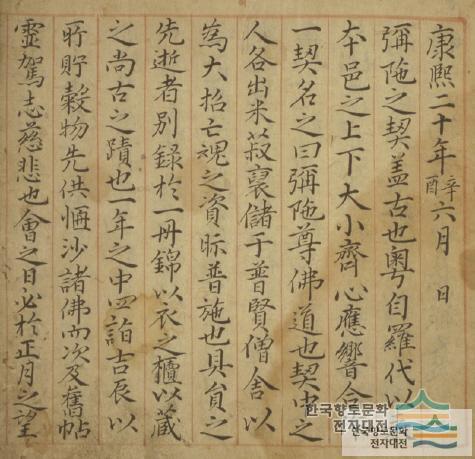 康熙二十年辛酉六月 日
彌陁之契盖古也粤自羅代以
本邑之上下大小齊心應響合
一契名之曰彌陁尊佛道也契中之
人各出米菽裏儲于普賢僧舍以
爲大招亡魂之資眎普施也具負之
先逝者別錄於一冊錦以衣之櫃以藏
之尚古之蹟也一年之中四詣吉辰以
所貯穀物先供恒沙諸佛而次及舊帖
靈駕志慈悲也會之日必於正月之望
한국향토문화
전자대전
한국향토문화
전자대전